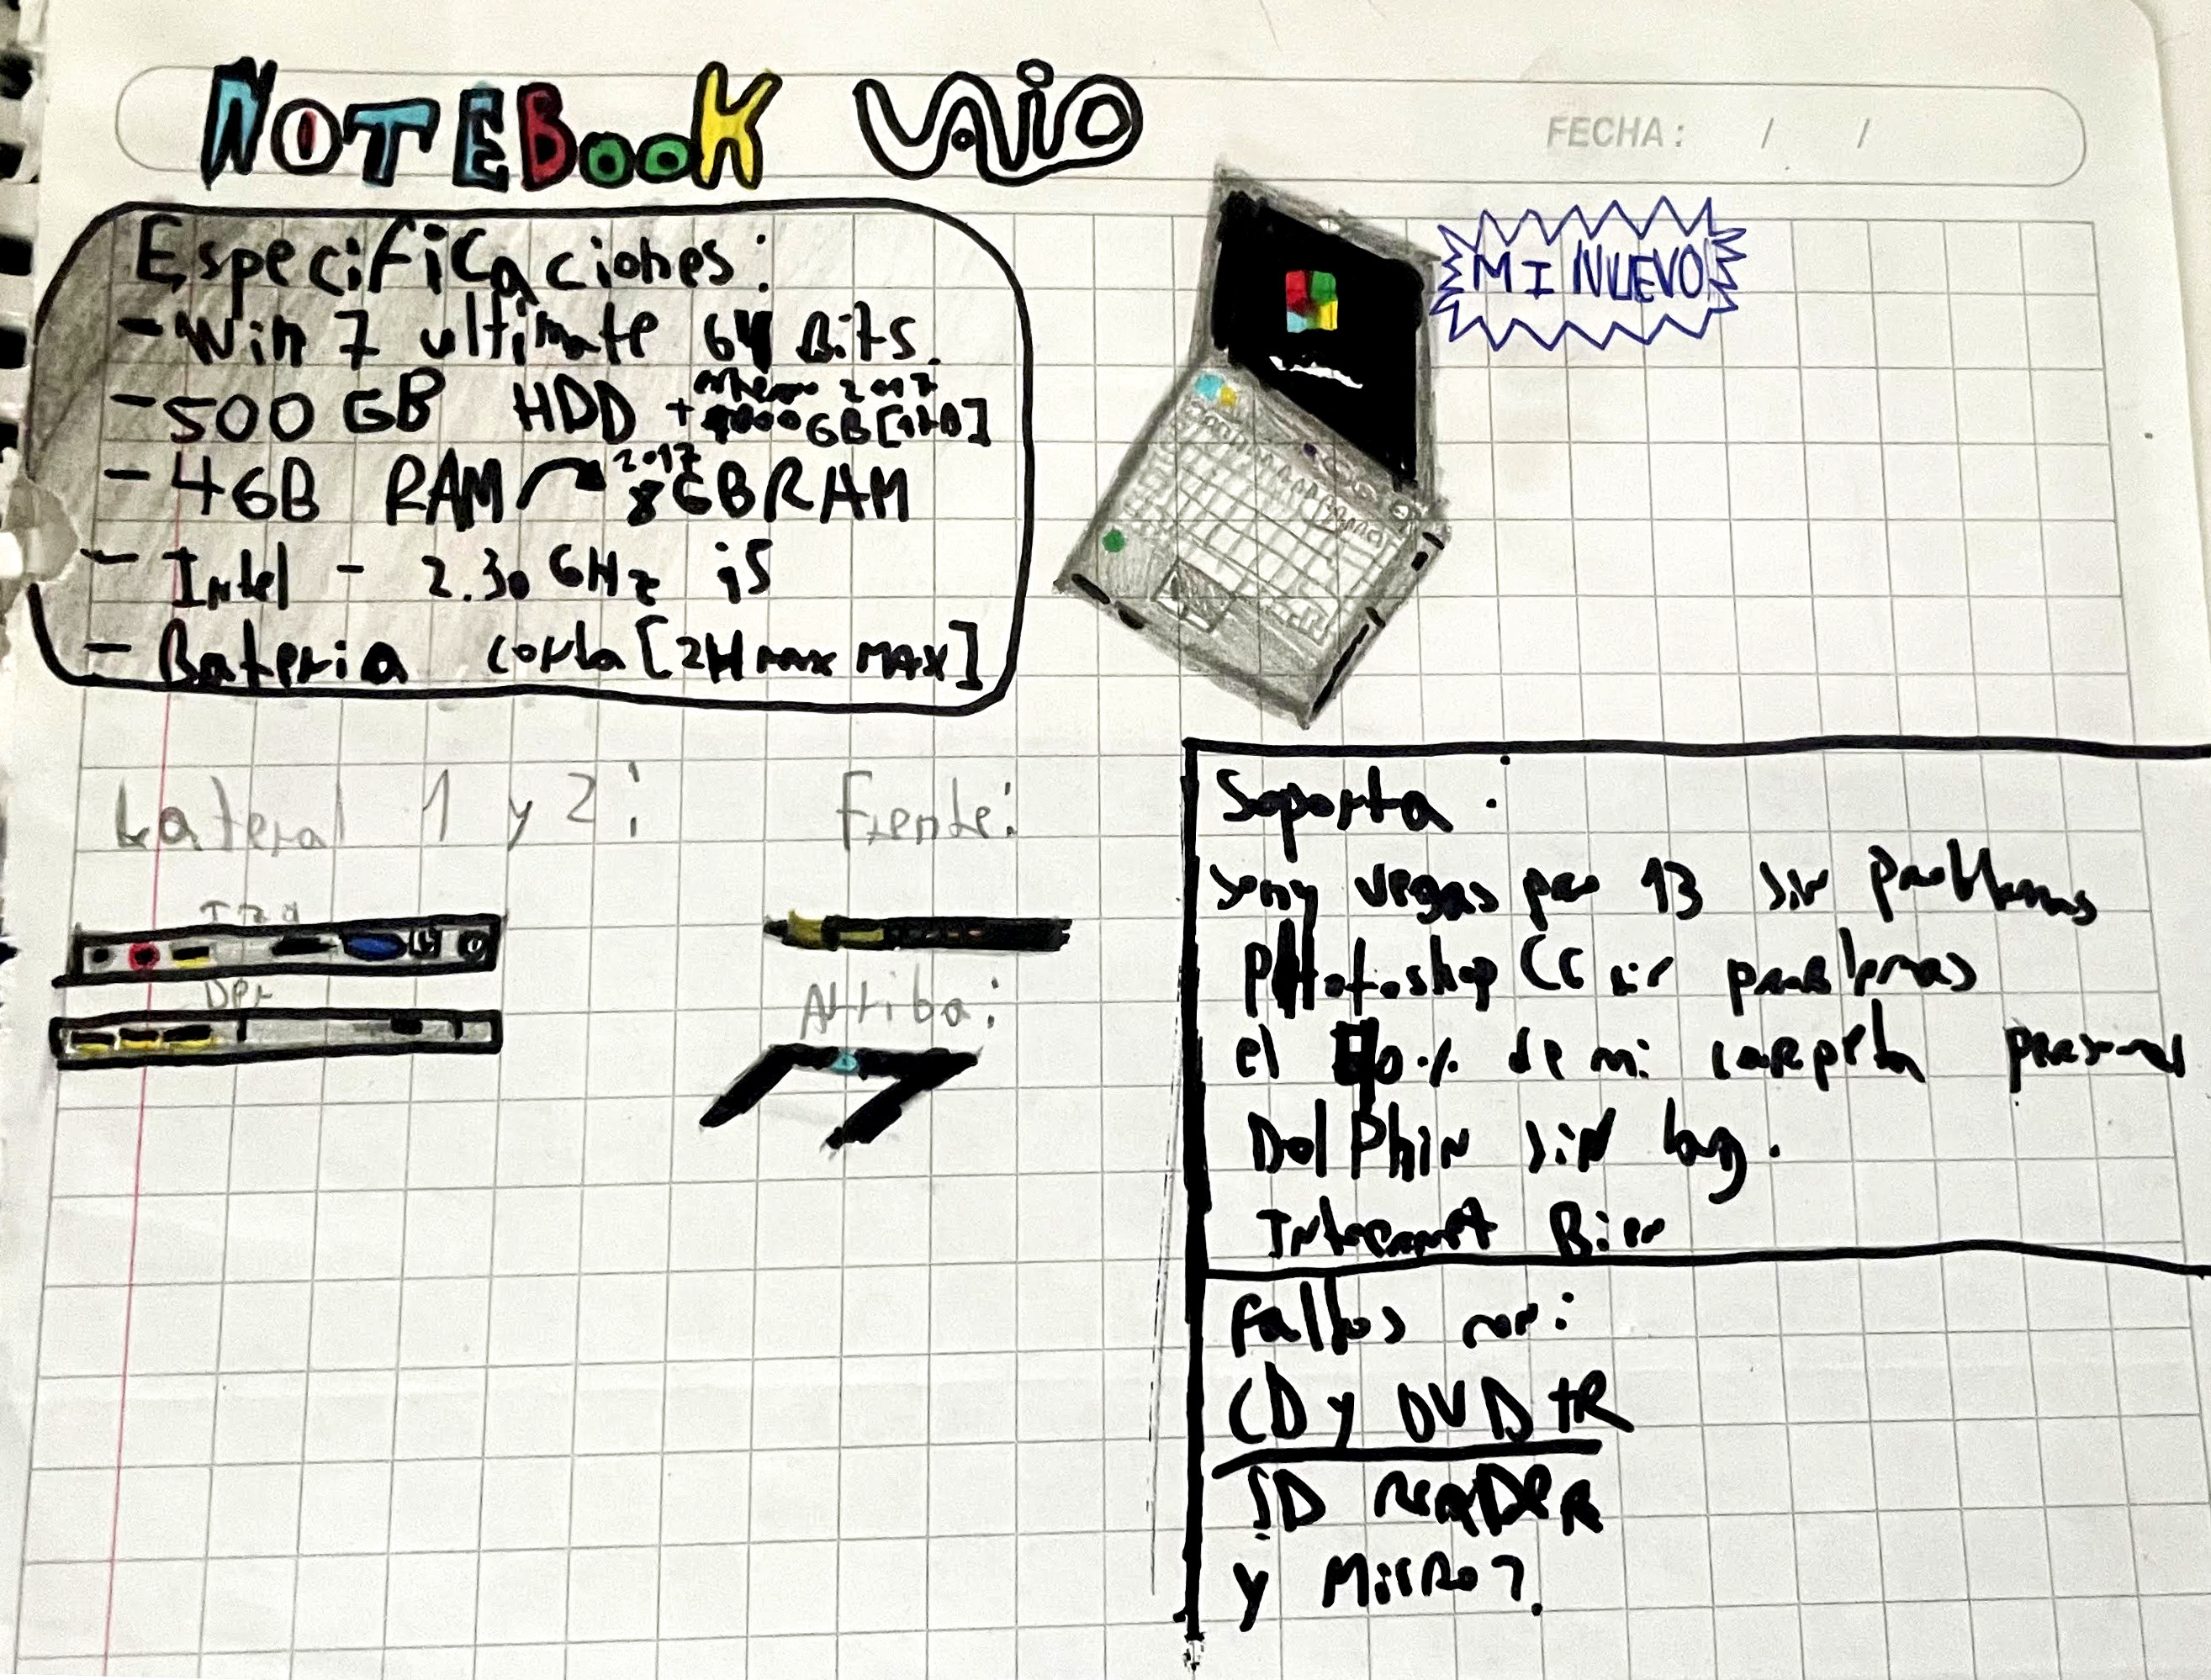 NOTEBooK VAIO
FECHA: / /
MI NUEVO
Especificaciones:
- Win 7 ultimate 64 Bits.
- 500 GB HDD + 2017
1000 GB
- 4GB RAM 2017 8GB RAM
- Intel - 2.30 GHz i5
- Bateria corta [2H max MAX]
Lateral 1 y 2:
Frente:
Izq
Der
Arriba:
Soporta:
Sony vegas pro 13 sin problemas
PHotoshop CC sin problemas
el % de mi carpeta personal
DolPhin siN lag.
Internet Bien
fallos
CD y DVD +R
SD reaDeR
y MicRo?